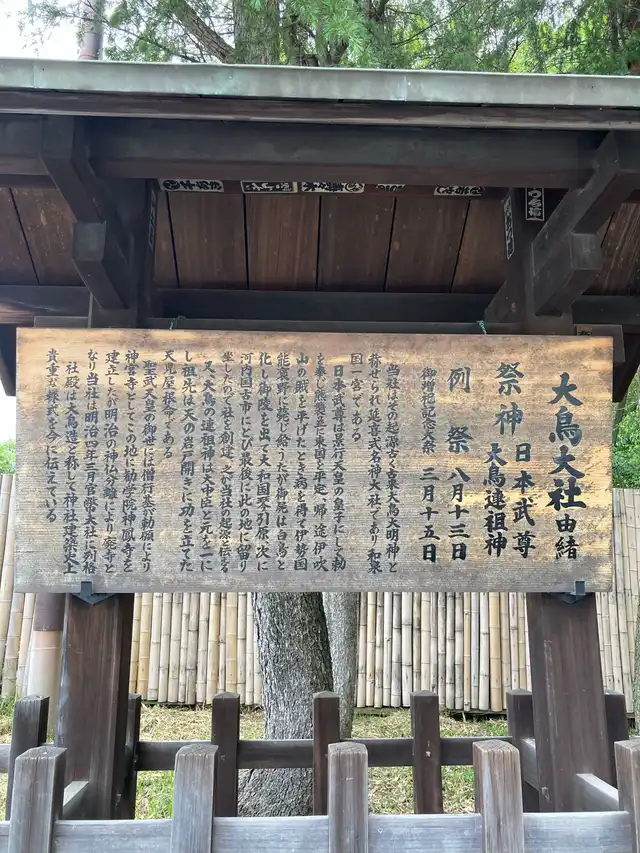 大鳥大社由緒
祭神 日本武尊
大鳥連祖神
例祭 八月十三日
御増祀記念大祭 三月十五日
当社はその起源古く古来大鳥大明神と
称せられ延喜式名神大社であり和泉
国一宮である
日本武尊は景行天皇の皇子にして勅
を奉じ熊襲並に東国を平定 帰途伊吹
山の賊を平げたとき病を得て伊勢国
能褒野に薨じ給うたが御屍は白鳥と
化し御陵を出て大和国琴引原 次に
河内国古市にとび最後に此の地に留り
坐したので社を創建 之が当社の起源と伝る
又、大鳥の連祖神は大中臣と元を一に
し祖先は天の岩戸開きに功を立てた
天児屋根命である
聖武天皇の御世には僧行基が勅願により
神宮寺としてこの地に勧学院神鳳寺を
建立したが明治の神仏分離により廃寺と
なり当社は明治四年三月官幣大社に列格
社殿は大鳥造と称して神社建築史上
貴重な様式を今に伝えている